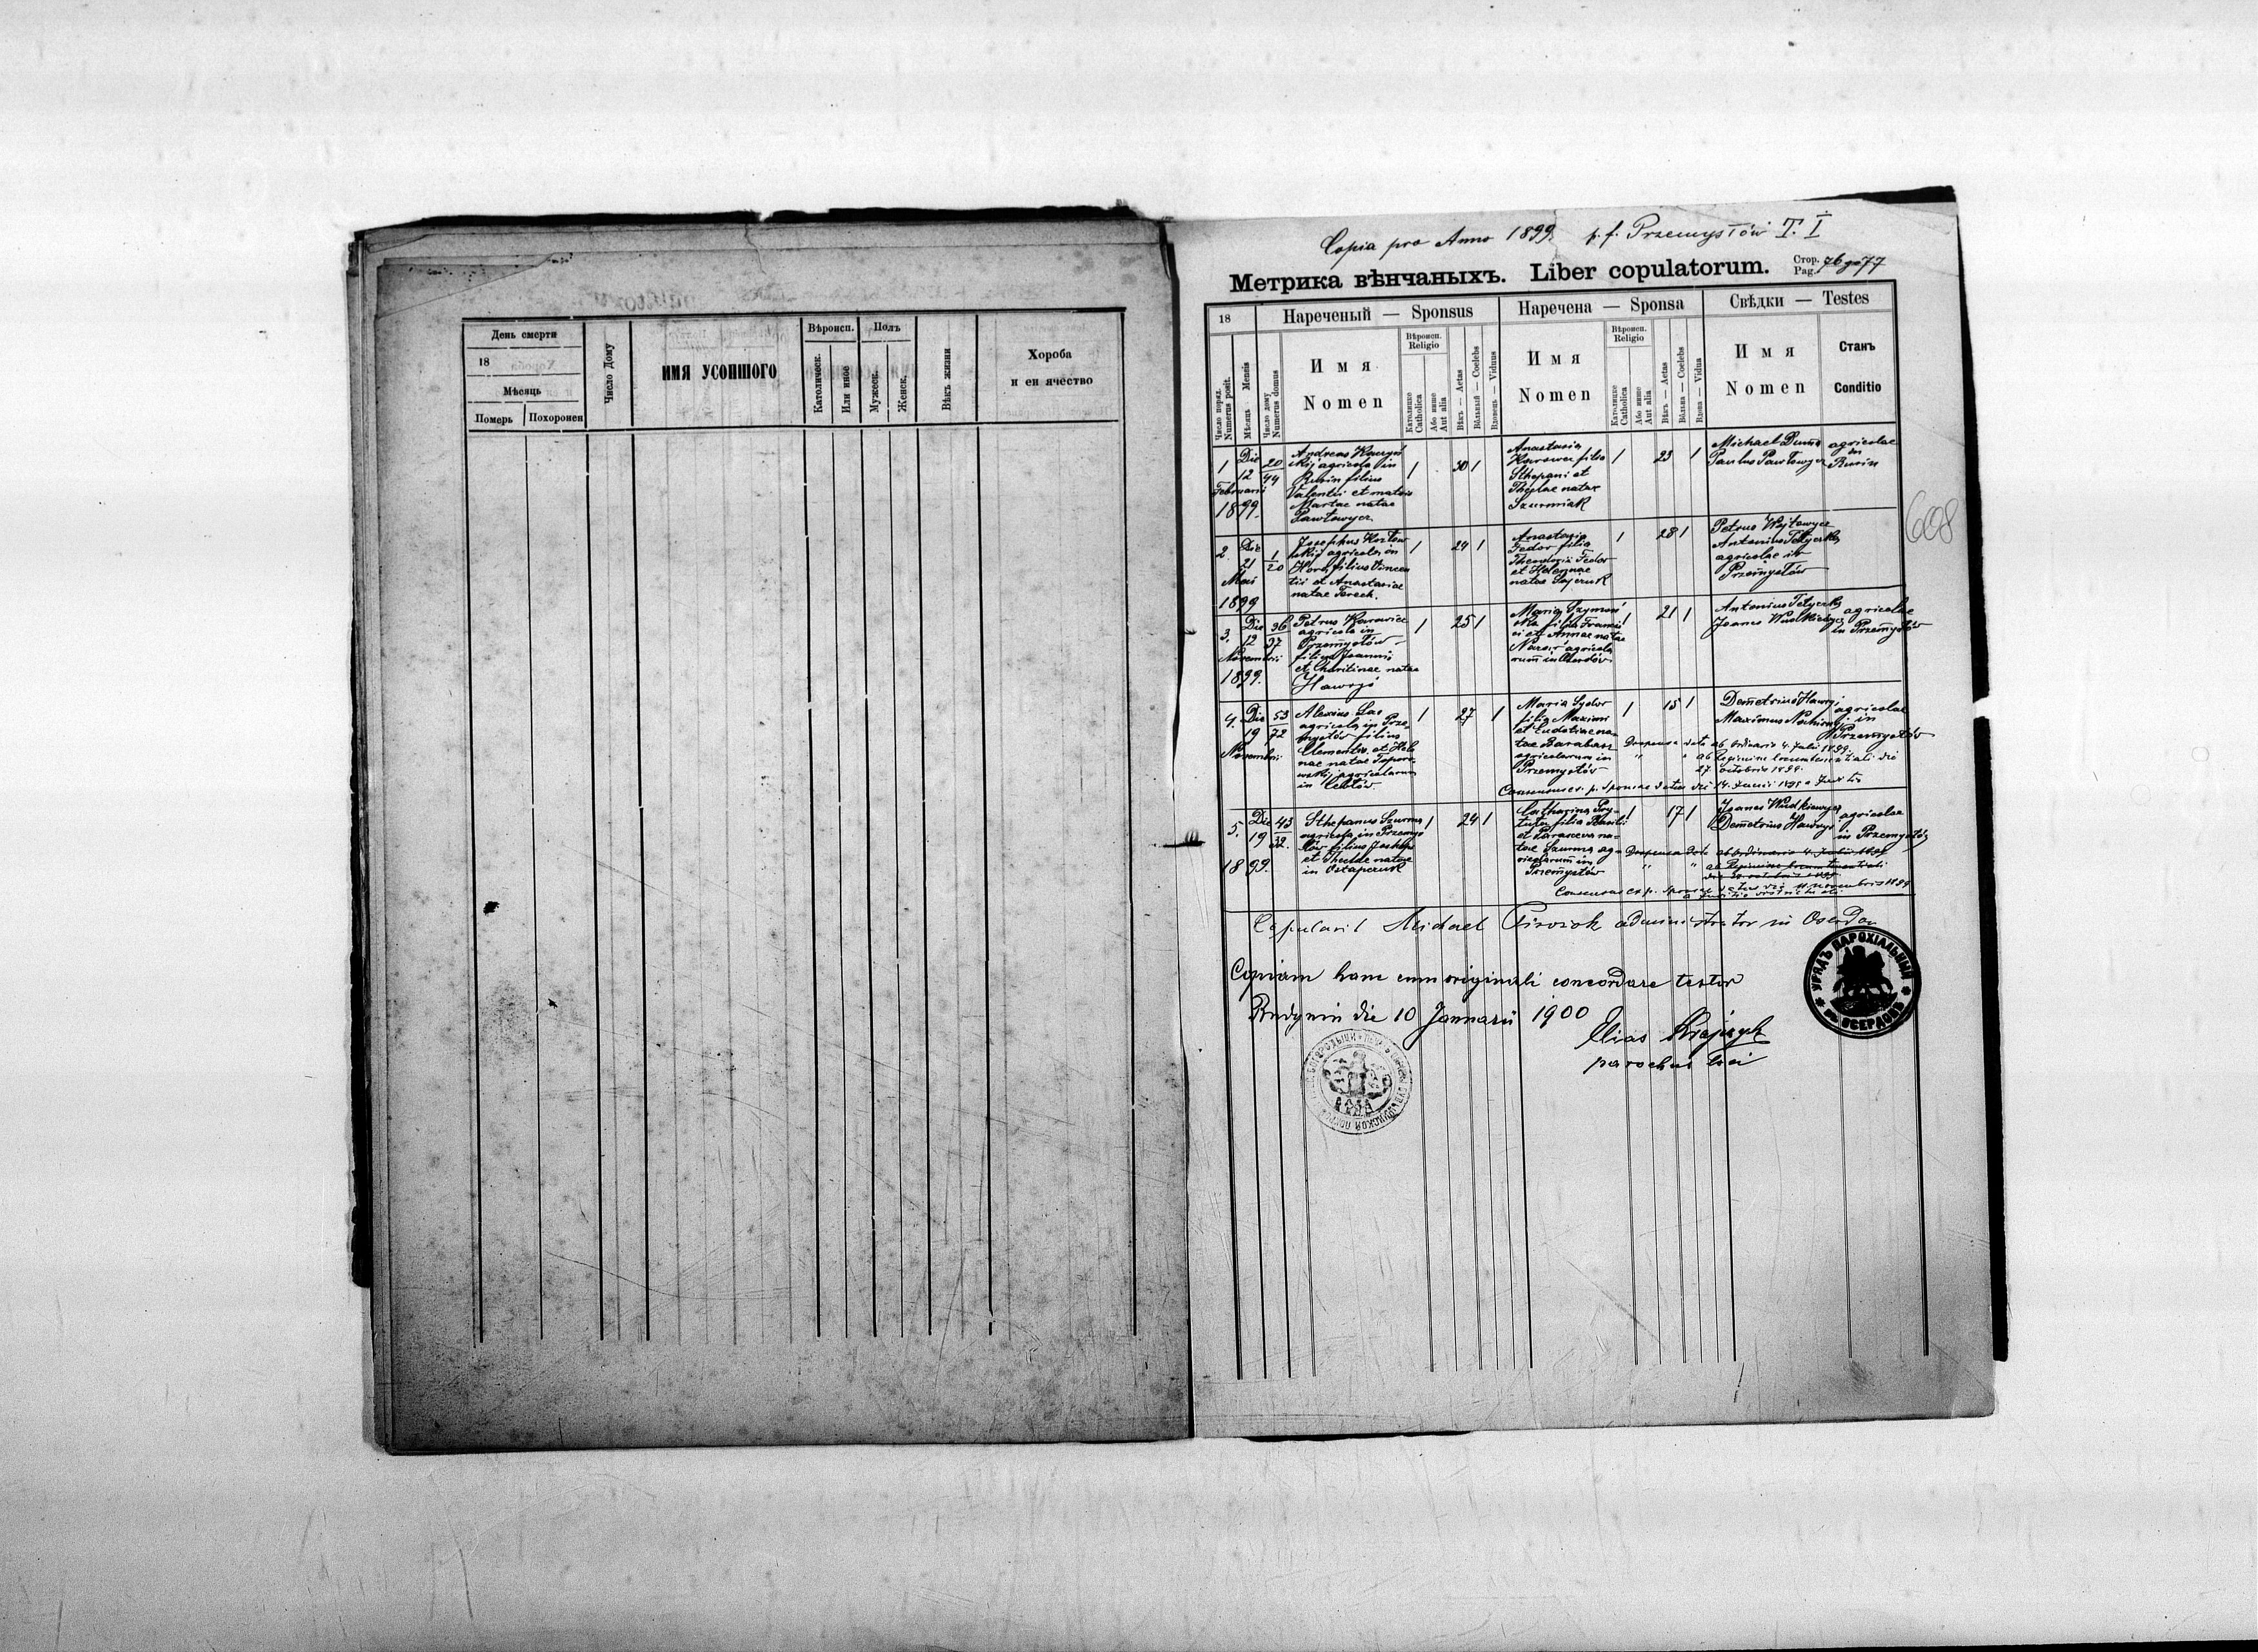 День смерти
18
Мѣсяць
Померъ
Похороненъ
Число дому
ИМЯ УСОПШОГО
Вѣроисп.
Католическ.
Или иное
Полъ
Мужеск.
Женск.
Вѣкъ жизни
Хороба
и еи ячество
Copia pro Anno 1899. p. f. Przemysłów T. I
Метрика вѣнчаныхъ. Liber copulatorum.
Стор.
Pag. 76 77
18
Нареченый — Sponsus
Наречена — Sponsa
Свѣдки — Testes
Число поряд.
Numerus posit.
Мѣсяць Mensis
Число дому
Numerus domus
Имя
Nomen
Вѣроисп.
Religio
Католицке
Catholica
Або инше
Aut alia
Вѣкъ — Aetas
Вольный — Coelebs
Вдовець — Viduus
Имя
Nomen
Вѣроисп.
Religio
Католицке
Catholica
Або инше
Aut alia
Вѣкъ — Aetas
Вольна — Coelebs
Вдова — Vidua
Имя
Nomen
Станъ
Conditio
1
Die
12
Februarii
1899.
20
44
Andreas
agricola in
filius
Valentii et matris
Martae natae
Pawłowycz
1
30 1
Anastasia
filia
Sthepani et
Theclae natae
Szurmiak
1
23
1
Michael Duma
Paulus Pawłowycz
agricolae
in
2.
Die
21
Maii
1899
1
20
Josephus Kozłow
skij agricola in
filius Vincen
tii et Anastasiae
natae Terech.
1
24 1
Anastasia
Fedor filia
Theodorii Fedor
et Helennae
natae
1
28 1
Petrus Wojtowycz
Antonius Tetyczka
agricolae in
Przemysłów
3.
Die
12
Novembris
1899.
36
37
Petrus Karowicz
agricola in
Przemysłów
filius Joannis
et Charitinae natae
Hawryś
1
25 1
Maria Szymań
ska filia Franci
ci et Annae natae
agricola
rum in
1
21 1
Antonius Tetyczka
Joanes
agricolae
in Przemysłów
4.
Die
19
Novembris
53
72
Alexius Las
agricola in Prze
mysłów filius
Clementis et Hele
nae natae Toporo
wskij agricolarum
in
1
27
1
Maria Sydor
filia Maximi
et Eudotiae na
tae Baraban
agricolarum in
Przemysłów
1
15 1
Demetrius Hawryś
Maximus
agricolae
in
Przemysłów
Dispensa data ab Ordinario 4. Julii 1899.
" " ab Regimine locumtenentiali die
27 octobris 1899.
Consensus ex p. sponsae datus die 14. Junii 1899 a
5.
Die
19
1899.
43
32.
Sthepanus Szurma
agricola in Przemys
łów filius Josephi
et Theclae natae
in Ostapczuk
1
24 1
Catharina Pry
tuła filia Basilii
et Parasceva na
tae Szurma ag
ricolarum in
Przemysłów
1
17 1
Joanes Wudkiewycz
Demetrius Hawryś
agricolae
in Przemysłów
Dispensa data ab Ordinario 4. Julii 1899
" " ab Regimine locumtenentiali
die 27 octobris 1899
Consensus ex p. sponsae datus die 11 novembris 1899
608
Copulavit Michael administrator in Oserdow
Copiam hanc cum originali concordare testor
Budynin die 10 Januarii 1900
Elias Krajczyk
parochus loci
УРЯДЪ ПАРОХІАЛЬНЫЙ
въ ОСЕРДОВѢ